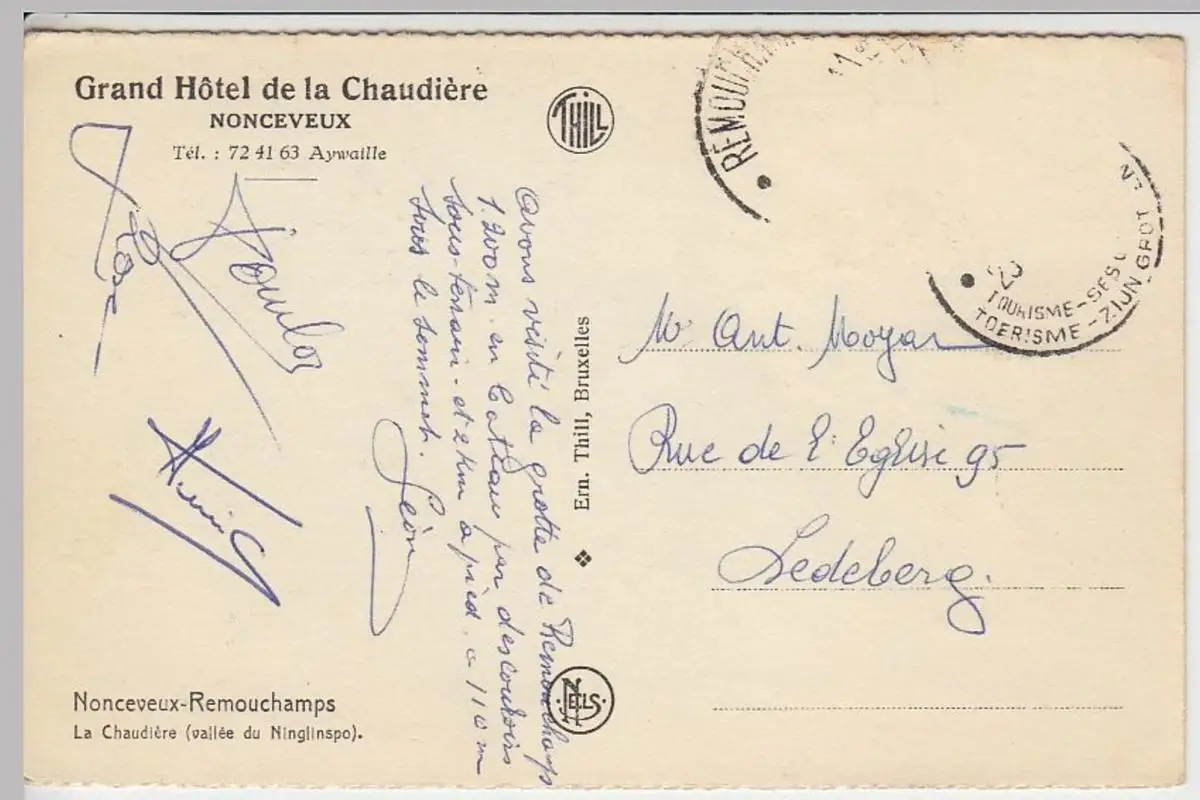 Grand Hôtel de la Chaudière
NONCEVEUX
Tél. : 72 41 63 Aywaille
THILL
Avons visité la grotte de Remouchamps
1.200 m. en bateau par des couloirs
sous-terrain - et 2 km à pied. à 110 m
sous le sommet.
Léon
Ern. Thill, Bruxelles
NELS
Nonceveux-Remouchamps
La Chaudière (vallée du Ninglinspo).
REMOUCH
TOURISME - SES
TOERISME - ZIJN GROT EN
Mr Ant. Moyar
Rue de l'Eglise 95
Ledeberg.